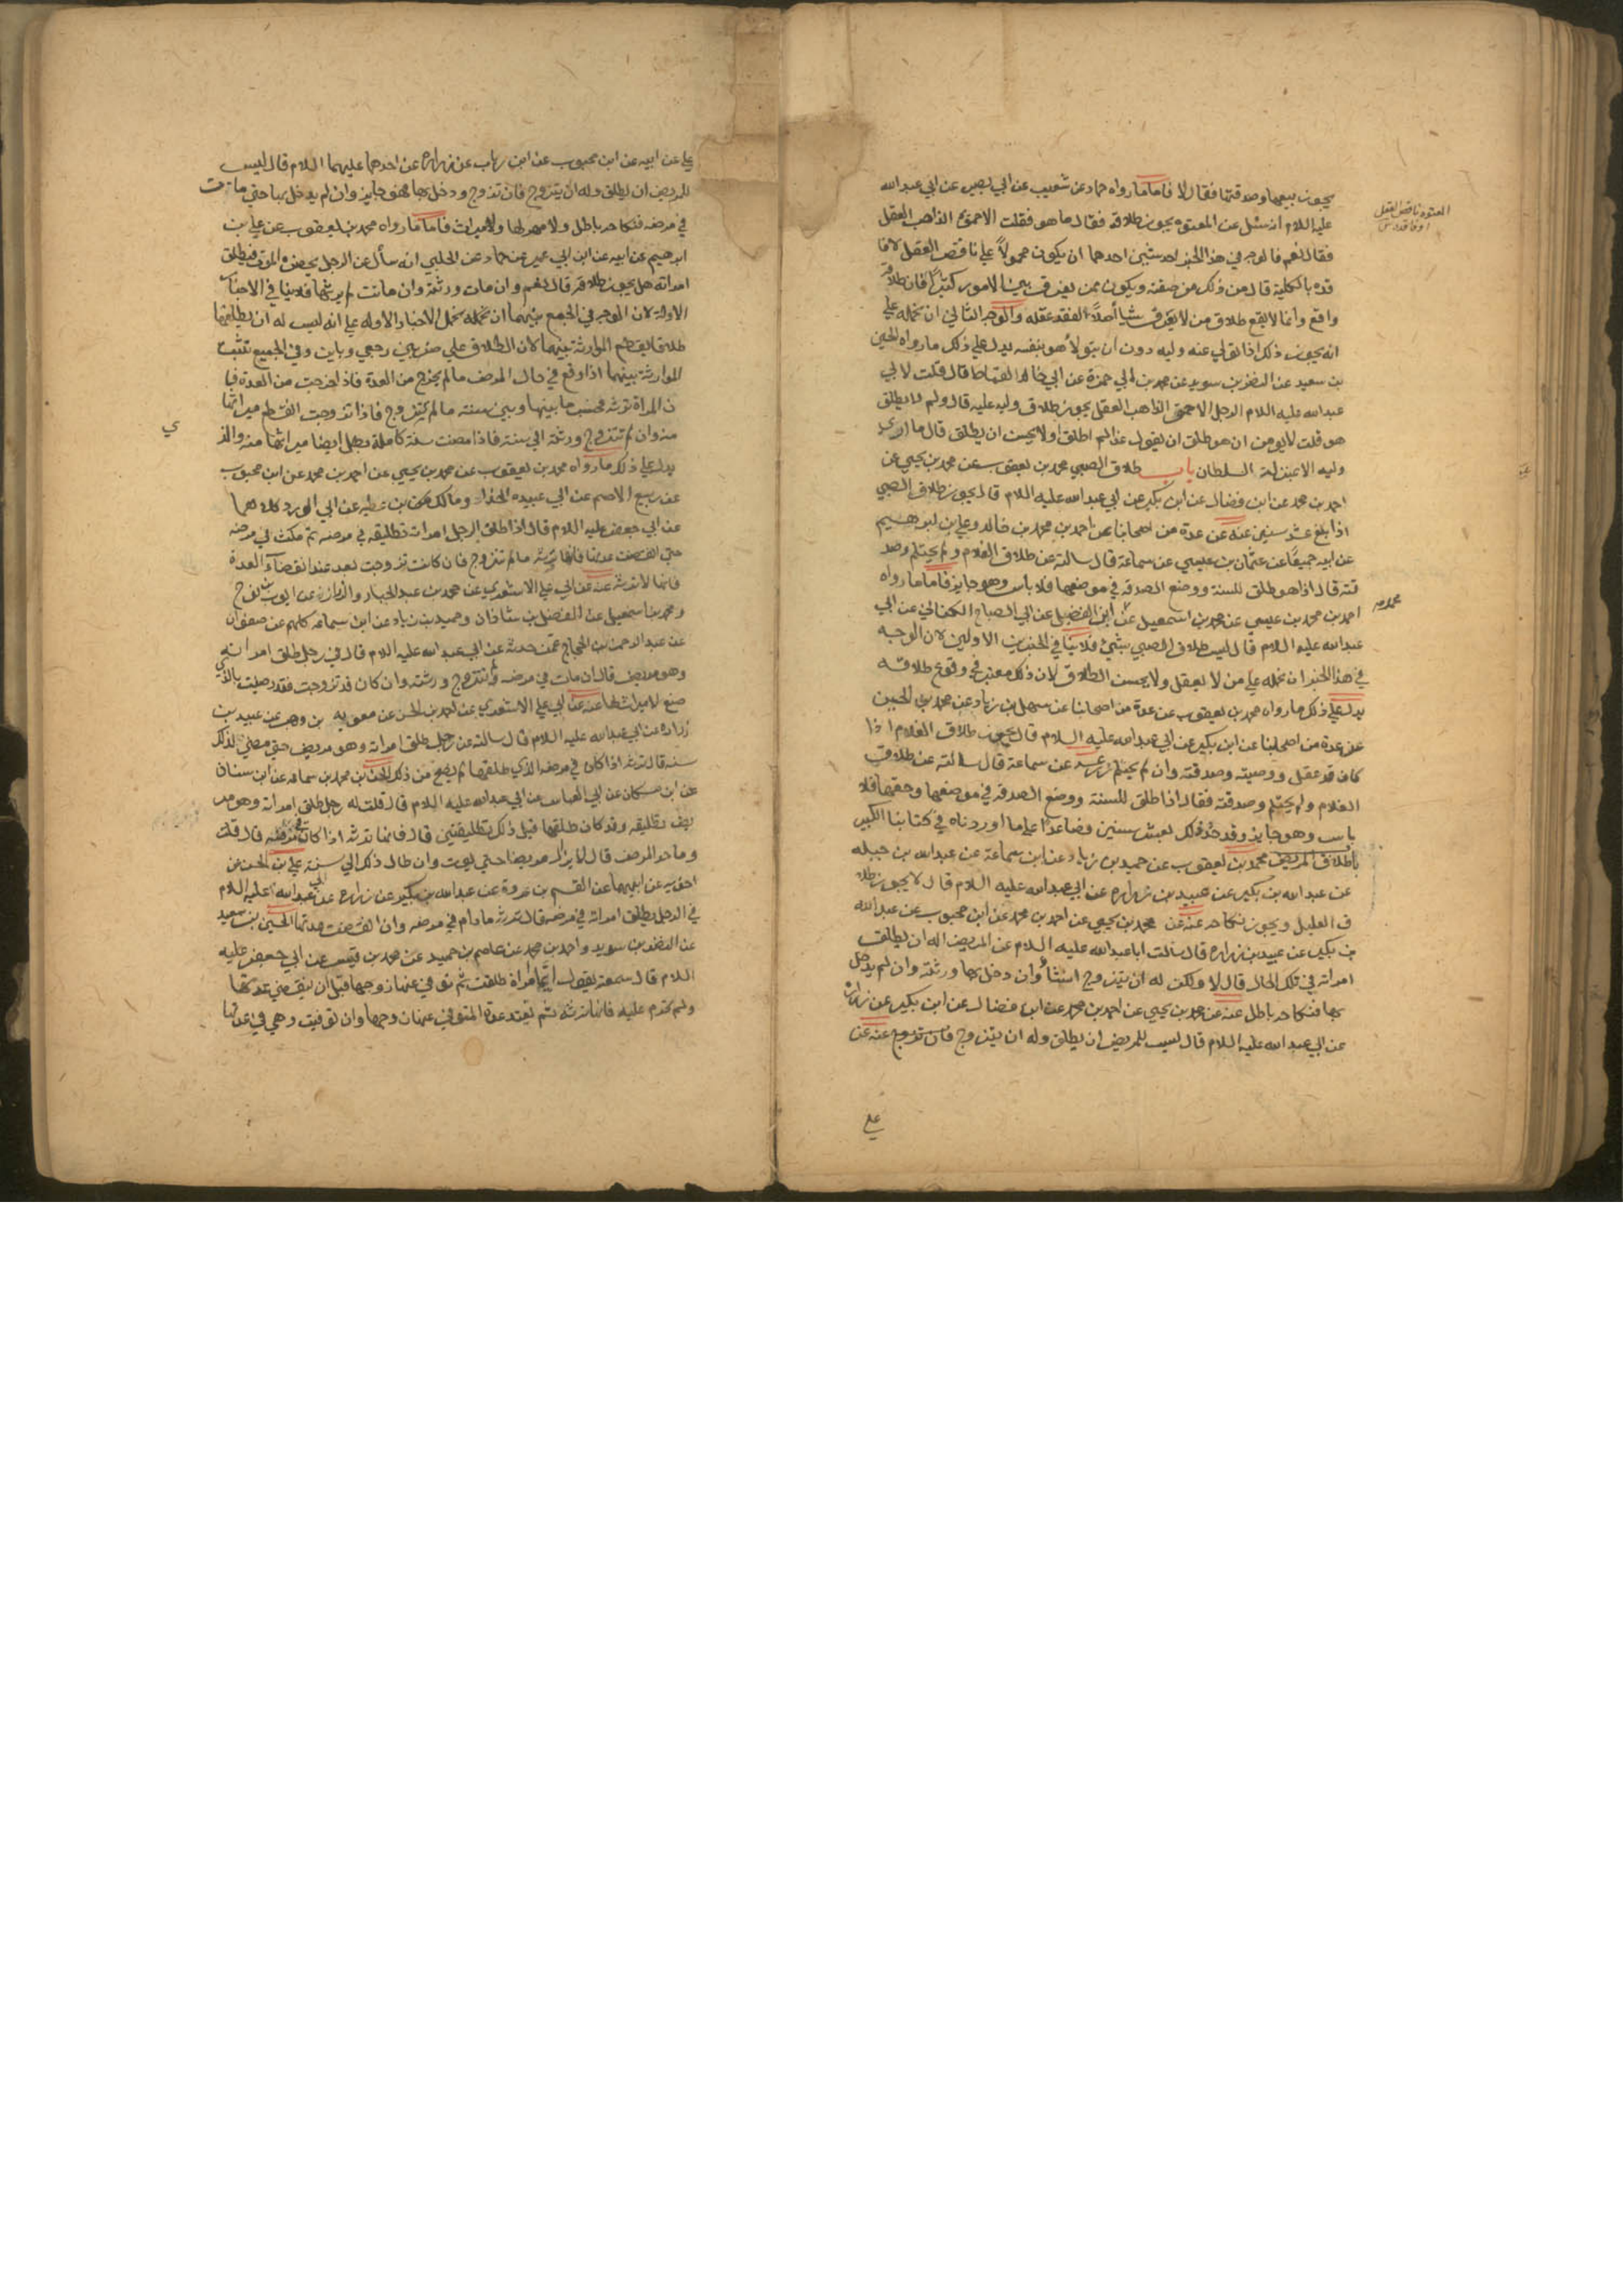 يجوز بيعها وصدقتها فقال لا فاما ما رواه حماد عن شعيب عن ابي بصير عن ابي عبد الله
عليه السلام انه سئل عن المعتوه يجوز طلاقه فقال ما هو فقلت الاحمق الذاهب العقل
فقال نعم فالوجه في هذا الخبر احد شيئين احدهما ان يكون محمولا علي ناقص العقل لا فا
قده بالكلية قال من ذلك من صفته ويكون ممن يفرق بين الامور كثيرا فان طلاقه
واقع وانما لا يقع طلاق من لا يعرف شيا اصلا لفقد عقله والوجه الثاني ان نحمله علي
انه يجوز ذلك اذا تولي عنه وليه دون ان يتولاه هو بنفسه يدل علي ذلك ما رواه الحسين
بن سعيد عن النضر بن سويد عن محمد بن ابي حمزة عن ابي خالد القماط قال قلت لابي
عبد الله عليه السلام الرجل الاحمق الذاهب العقل يجوز طلاق وليه عليه قال ولم لا يطلق
هو قلت لا يومن ان هو طلق ان يقول غدا لم اطلق او لا يحسن ان يطلق قال ما اري
وليه الا بمنزلة السلطان باب طلاق الصبي محمد بن يعقوب عن محمد بن يحيي عن
احمد بن محمد عن ابن فضال عن ابن بكير عن ابي عبد الله عليه السلام قال يجوز طلاق الصبي
اذا بلغ عشر سنين عنه عن عدة من اصحابنا عن احمد بن محمد بن خالد وعلي بن ابرهيم
عن ابيه جميعا عن عثمان بن عيسي عن سماعة قال سالته عن طلاق الغلام ولم يحتلم وصد
قته قال اذا هو طلق للسنة ووضع الصدقة في موضعها فلا باس وهو جايز فاما ما رواه
احمد بن محمد بن عيسي عن محمد بن اسمعيل عن ابن الفضيل عن ابي الصباح الكناني عن ابي
عبد الله عليه السلام قال ليس طلاق الصبي بشئ فلا ينافي الخبرين الاولين لان الوجه
في هذا الخبر ان نحمله علي من لا يعقل ولا يحسن الطلاق لان ذلك معتبر في وقوع طلاقه
يدل علي ذلك ما رواه محمد بن يعقوب عن عدة من اصحابنا عن سهل بن زياد عن محمد بن الحسين
عن عدة من اصحابنا عن ابن بكير عن ابي عبد الله عليه السلام قال يجوز طلاق الغلام اذا
كان قد عقل ووصيته وصدقته وان لم يحتلم زرعه عن سماعة قال سالته عن طلاق
الغلام ولم يحتلم وصدقته فقال اذا طلق للسنة ووضع الصدقة في موضعها وحقها فلا
باس وهو جايز وقد حد ذلك بعشر سنين فصاعدا علي ما اوردناه في كتابنا الكبير
باب طلاق المريض محمد بن يعقوب عن حميد بن زياد عن ابن سماعة عن عبد الله بن جبله
عن عبد الله بن بكير عن عبيد بن زراره عن ابي عبد الله عليه السلام قال لا يجوز طلا
ق العليل ويجوز نكاحه عنه عن محمد بن يحيي عن احمد بن محمد عن ابن محبوب عن عبد الله
بن بكير عن عبيد بن زراره قال سالت ابا عبد الله عليه السلام عن المريض اله ان يطلق
امراته في تلك الحال قال لا ولكن له ان يتزوج ان شاء وان دخل بها ورثته وان لم يدخل
بها فنكاحه باطل عنه عن محمد بن يحيي عن احمد بن محمد عن ابن فضال عن ابن بكير عن زرارة
عن ابي عبد الله عليه السلام قال ليس للمريض ان يطلق وله ان يتزوج فان تزوج عنه عن
علي
المعتوه ناقص العقل
محمد
علي عن ابيه عن ابن محبوب عن ابن رياب عن زراره عن احدهما عليهما السلام قال ليس
للمريض ان يطلق وله ان يتزوج فان تزوج ودخل بها فهو جايز وان لم يدخل بها حتي مات
في مرضه فنكاحه باطل ولا مهر لها ولا ميراث فاما ما رواه محمد بن يعقوب عن علي بن
ابرهيم عن ابيه عن ابن ابي عمير عن حماد عن الحلبي انه سأل عن الرجل يحضره الموت فيطلق
امراته هل يجوز طلاقه قال نعم وان مات ورثته وان ماتت لم يرثها فلا ينافي الاخبار
الاولة لان الوجه في الجمع بينهما ان نحمله نحمل الاخبار الاوله علي انه ليس له ان يطلقها
طلاقا يقطع الموارثة بينهما لان الطلاق علي ضربين رجعي وباين وفي الجميع تثبت
الموارثة بينهما اذا وقع في حال المرض ما لم يخرج من العدة فاذا خرجت من العدة فا
ن المراة ترثه محسب ما بينها وبين سنه ما لم تتزوج فاذا تزوجت انقطع ميراثها
منه وان لم تتزوج ورثته الي سنة فاذا مضت سنة كاملة بطل ايضا ميراثها منه والذ
ي
يدل علي ذلك ما رواه محمد بن يعقوب عن محمد بن يحيي عن احمد بن محمد عن ابن محبوب
عن ربيع الاصم عن ابي عبيده الحذاء ومالك بن عطيه عن ابي الورد كلاهما
عن ابي جعفر عليه السلام قال اذا طلق الرجل امراته تطليقة في مرضه ثم مكث في مرضه
حتي انقضت عدتها فانها ترثه ما لم تتزوج فان كانت تزوجت بعد انقضآء العدة
فانها لا ترثه عنه عن ابي علي الاشعري عن محمد بن عبد الجبار والرزاز عن ايوب بن نوح
ومحمد بن اسمعيل عن الفضل بن شاذان وحميد بن زياد عن ابن سماعه كلهم عن صفوان
عن عبد الرحمن بن الحجاج عمن حدثه عن ابي عبد الله عليه السلام قال في رجل طلق امراته
وهو مريض قال ان مات في مرضه ولم تتزوج ورثته وان كان قد تزوجت فقد رضيت بالذي
صنع لا ميراث لها عنه عن ابي علي الاشعري عن احمد بن الحسن عن معويه بن وهب عن عبيد بن
زراره عن ابي عبد الله عليه السلام قال سالته عن رجل طلق امراته وهو مريض حتي مضي لذلك
سنه قال ترثه اذا كان في مرضه الذي طلقها لم يصح من ذلك الحسن بن محمد بن سماعه عن ابن سنان
عن ابن مسكان عن ابي العباس عن ابي عبد الله عليه السلام قال قلت له رجل طلق امراته وهو مر
يض تطليقه وقد كان طلقها قبل ذلك تطليقتين قال فانها ترثه اذا كان في مرضه قال قلت
وما حد المرض قال لا يزال مريضا حتي يموت وان طال ذلك الي سنة علي بن الحسن عن
اخويه عن ابيهما عن القسم بن عروة عن عبد الله بن بكير عن زراره عن ابي عبد الله عليه السلام
في الرجل يطلق امراته في مرضه قال ترثه ما دام في مرضه وان انقضت عدتها الحسين بن سعيد
عن النضر بن سويد واحمد بن محمد عن عاصم بن حميد عن محمد بن قيس عن ابي جعفر عليه
السلام قال سمعته يقول ايما امراة طلقت ثم توفي عنها زوجها قبل ان ينقضي عدتها
ولم تحرم عليه فانها ترثه ثم تعتد عدة المتوفي عنها زوجها وان توفيت وهي في عدتها